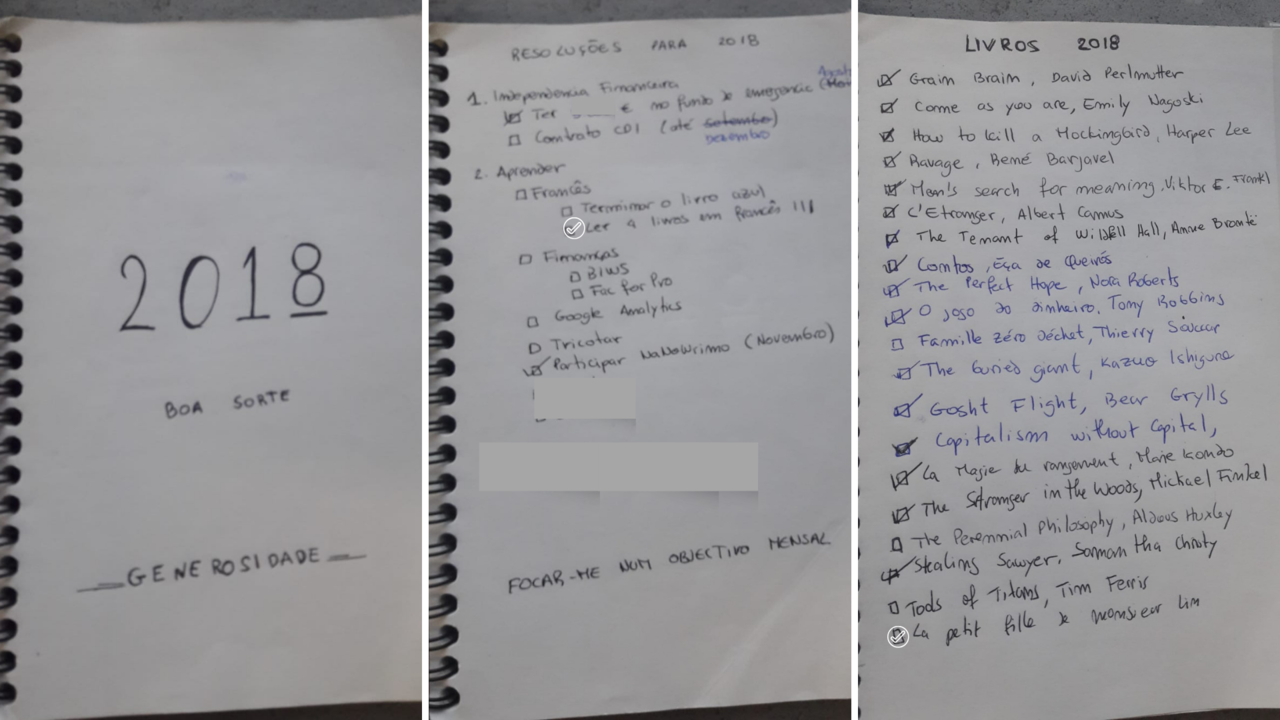 2018
BOA SORTE
GENEROSIDADE
RESOLUÇÕES PARA 2018
1. Independência Financeira
Ter € no fundo de emergência
Contrato CDI (até setembro)
dezembro
2. Aprender
Francês
Terminar o livro azul
Ler 4 livros em francês !!!
Finanças
BIWS
Fac for Pro
Google Analytics
Tricotar
Participar NaNoWrimo (Novembro)
FOCAR-ME NUM OBJECTIVO MENSAL
LIVROS 2018
Grain Brain, David Perlmutter
Come as you are, Emily Nagoski
How to kill a Mockingbird, Harper Lee
Ravage, René Barjavel
Men's search for meaning, Viktor E. Frankl
L'Etranger, Albert Camus
The Tenant of Wildfell Hall, Anne Brontë
Contos, Eça de Queirós
The Perfect Hope, Nora Roberts
O jogo do dinheiro, Tony Robbins
Famille zéro déchet, Thierry
The buried giant, Kazuo Ishiguro
Gosht Flight, Bear Grylls
Capitalism without Capital,
La Magie du rangement, Marie Kondo
The Stranger in the Woods, Michael Finkel
The Perennial Philosophy, Aldous Huxley
Stealing Sawyer, Samantha Christy
Tools of Titans, Tim Ferris
La petit fille de monsieur Lin